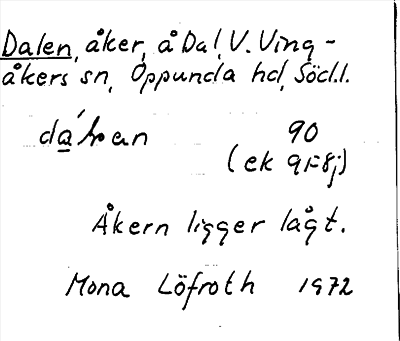 Dalen, åker, å Dal, V. Ving-
åkers sn, Oppunda hd, Södl.
90
(ek 9i8j)
Åkern ligger lågt.
Mona Löfroth 1972